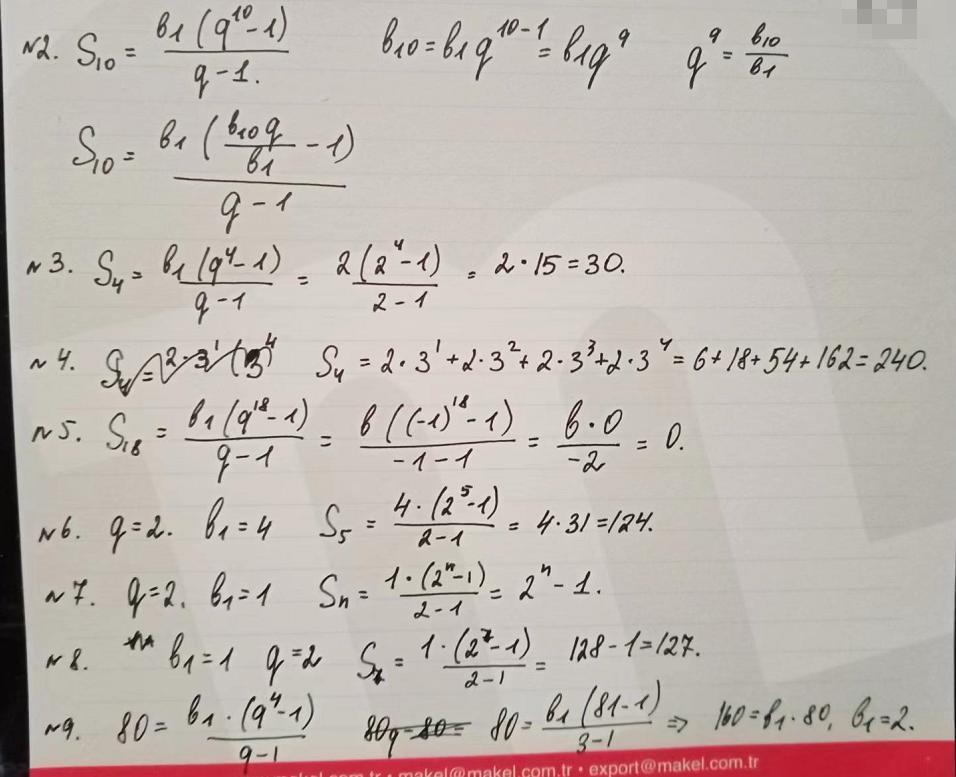 №2. S₁₀ = b₁(q¹⁰-1)/(q-1). b₁₀ = b₁q¹⁰⁻¹ = b₁q⁹ q⁹ = b₁₀/b₁
S₁₀ = b₁(b₁₀q/b₁ - 1)/(q-1)
№3. S₄ = b₁(q⁴-1)/(q-1) = 2(2⁴-1)/(2-1) = 2·15=30.
№4. S₄ = 2·3¹+2·3²+2·3³+2·3⁴ = 6+18+54+162=240.
№5. S₁₈ = b₁(q¹⁸-1)/(q-1) = b((-1)¹⁸-1)/(-1-1) = b·0/-2 = 0.
№6. q=2. b₁=4 S₅ = 4·(2⁵-1)/(2-1) = 4·31=124.
№7. q=2. b₁=1 Sₙ = 1·(2ⁿ-1)/(2-1) = 2ⁿ-1.
№8. b₁=1 q=2 S₇ = 1·(2⁷-1)/(2-1) = 128-1=127.
№9. 80 = b₁·(q⁴-1)/(q-1) 80q-80= 80 = b₁(81-1)/(3-1) ⇒ 160=b₁·80, b₁=2.
.com.tr • makel@makel.com.tr • export@makel.com.tr